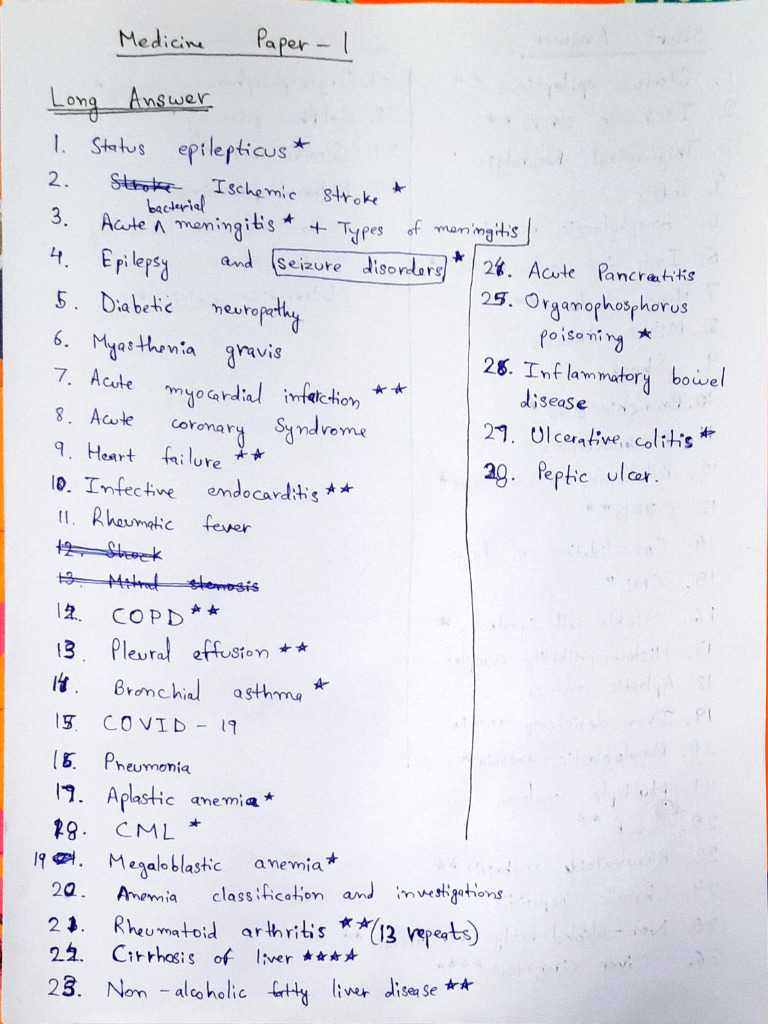 Medicine Paper - 1
Long Answer
1. Status epilepticus ★
2. Stroke Ischemic stroke ★
3. Acute bacterial meningitis ★ + Types of meningitis
4. Epilepsy and seizure disorders ★
5. Diabetic neuropathy
6. Myasthenia gravis
7. Acute myocardial infarction ★★
8. Acute coronary Syndrome
9. Heart failure ★★
10. Infective endocarditis ★★
11. Rheumatic fever
12. Shock
13. Mitral stenosis
12. COPD ★★
13. Pleural effusion ★★
14. Bronchial asthma ★
15. COVID - 19
16. Pneumonia
17. Aplastic anemia ★
18. CML ★
19. Megaloblastic anemia ★
20. Anemia classification and investigations
21. Rheumatoid arthritis ★★ (13 repeats)
22. Cirrhosis of liver ★★★★
23. Non-alcoholic fatty liver disease ★★
24. Acute Pancreatitis
25. Organophosphorus
poisoning ★
26. Inflammatory bowel
disease
27. Ulcerative colitis ★
28. Peptic ulcer.